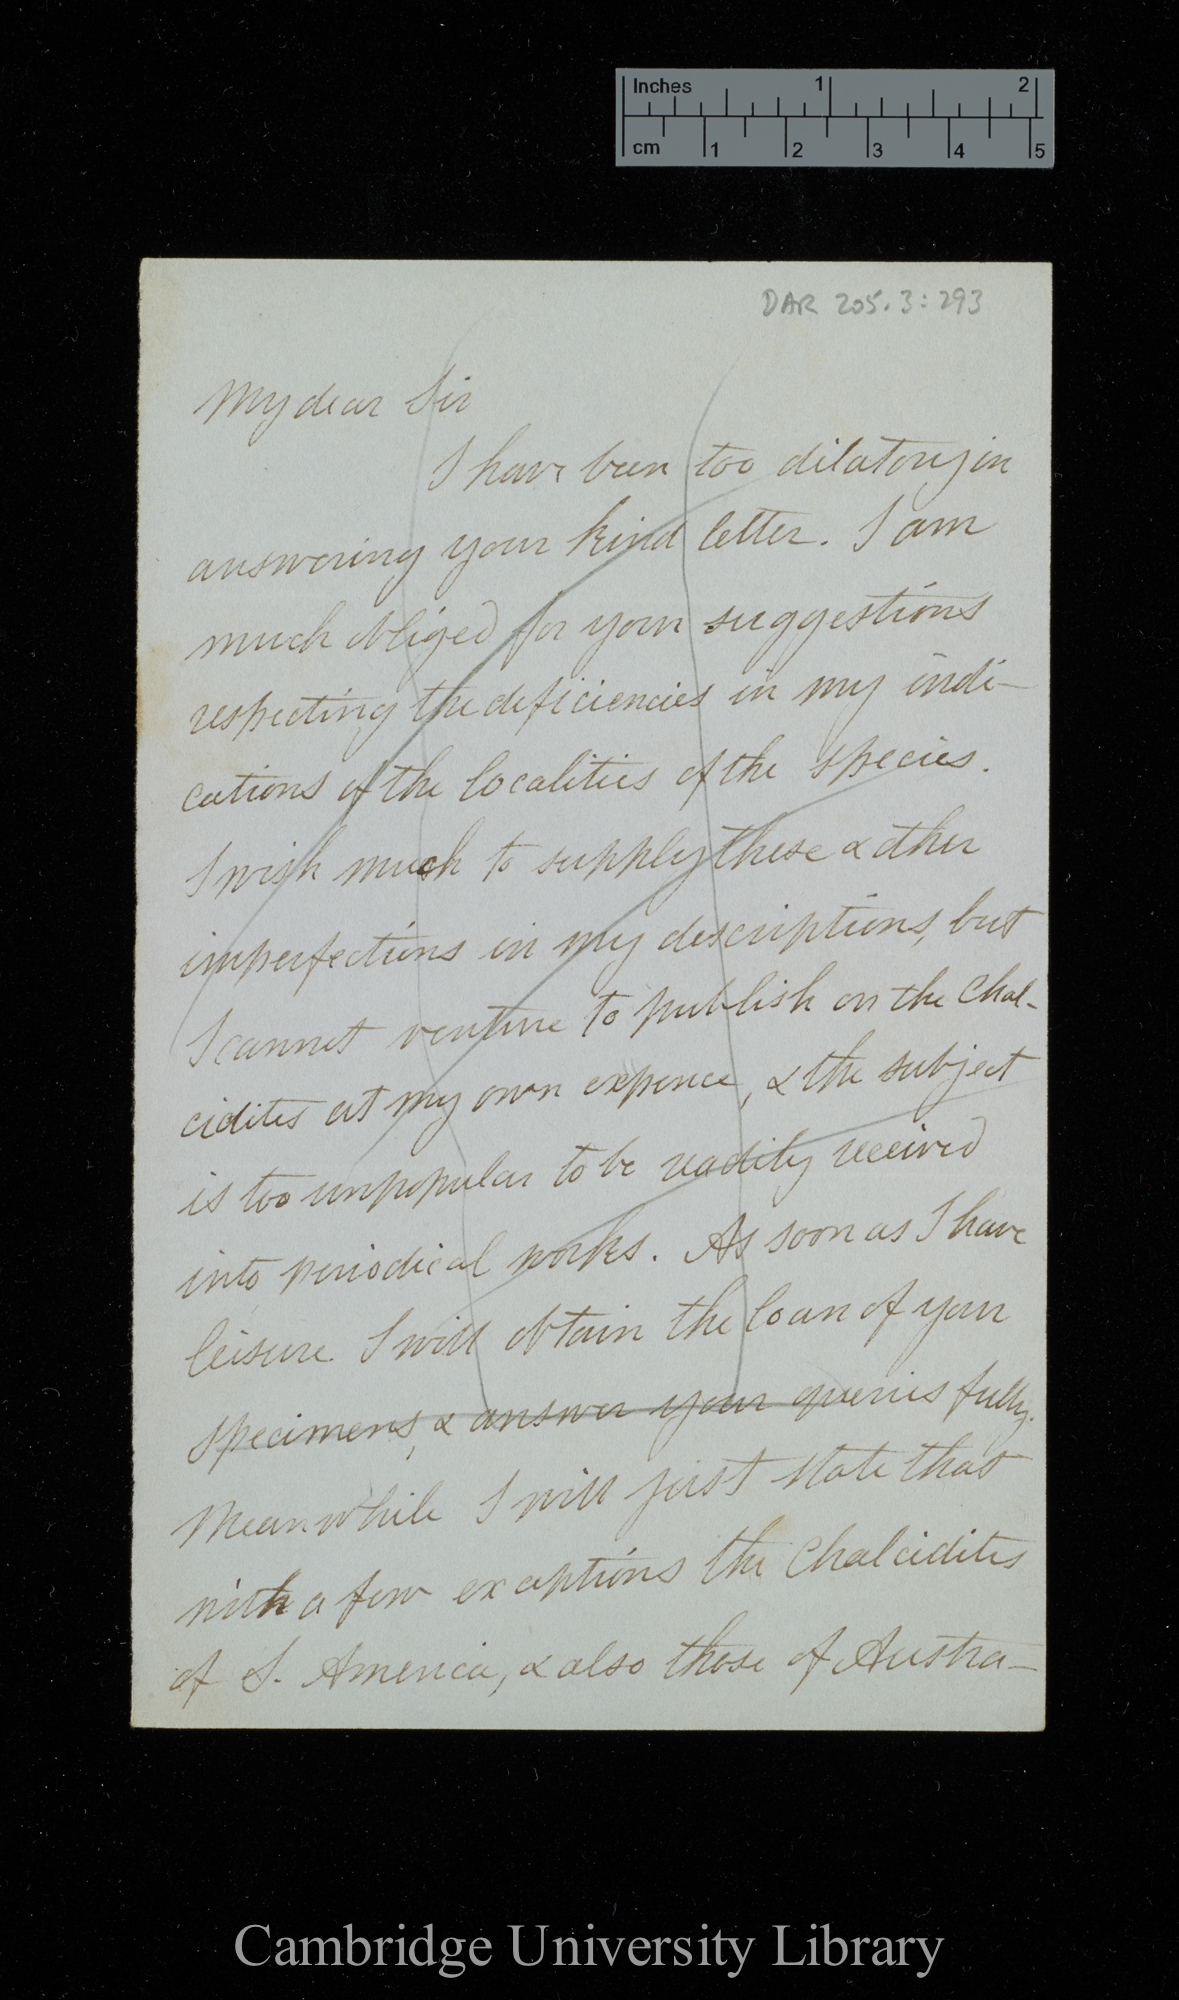 Inches 1 2
cm 1 2 3 4 5
DAR 205.3:293
My dear Sir
I have been too dilatory in
answering your kind letter. I am
much obliged for your suggestions
respecting the deficiencies in my indi-
cations of the localities of the species.
I wish much to supply these & other
imperfections in my descriptions, but
I cannot venture to publish on the Chal-
cidites at my own expence, & the subject
is too unpopular to be readily received
into periodical works. As soon as I have
leisure I will obtain the loan of your
specimens, & answer your queries fully.
Meanwhile I will just state that
with a few exceptions the Chalcidites
of S. America, & also those of Austra-
Cambridge University Library